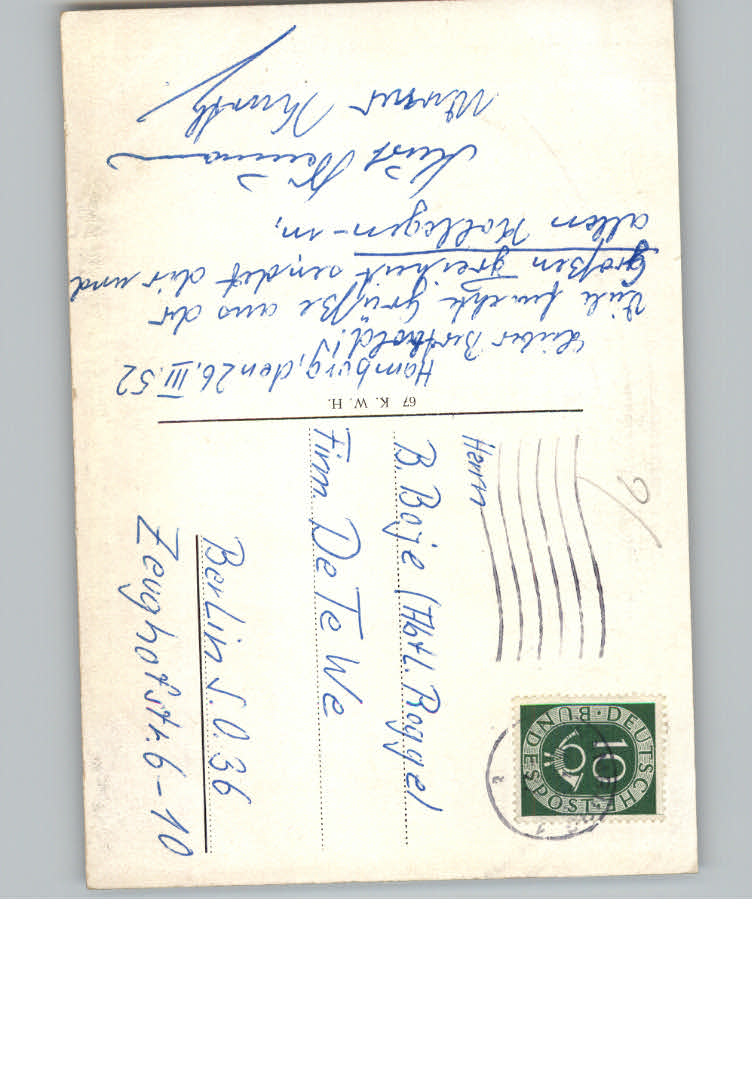 Hamburg, den 26. III. 52
Lieber Berthold!
Viele feuchte Grüße aus der
Großen Freiheit sendet dir und
allen Kollegen-in,
Horst
Werner
67 K. W. H.
Herrn
B. Boje (Abtl. Roggel
Firm DeTeWe
Berlin S.O. 36
Zeughofstr. 6-10
DEUTSCHE BUNDESPOST
10